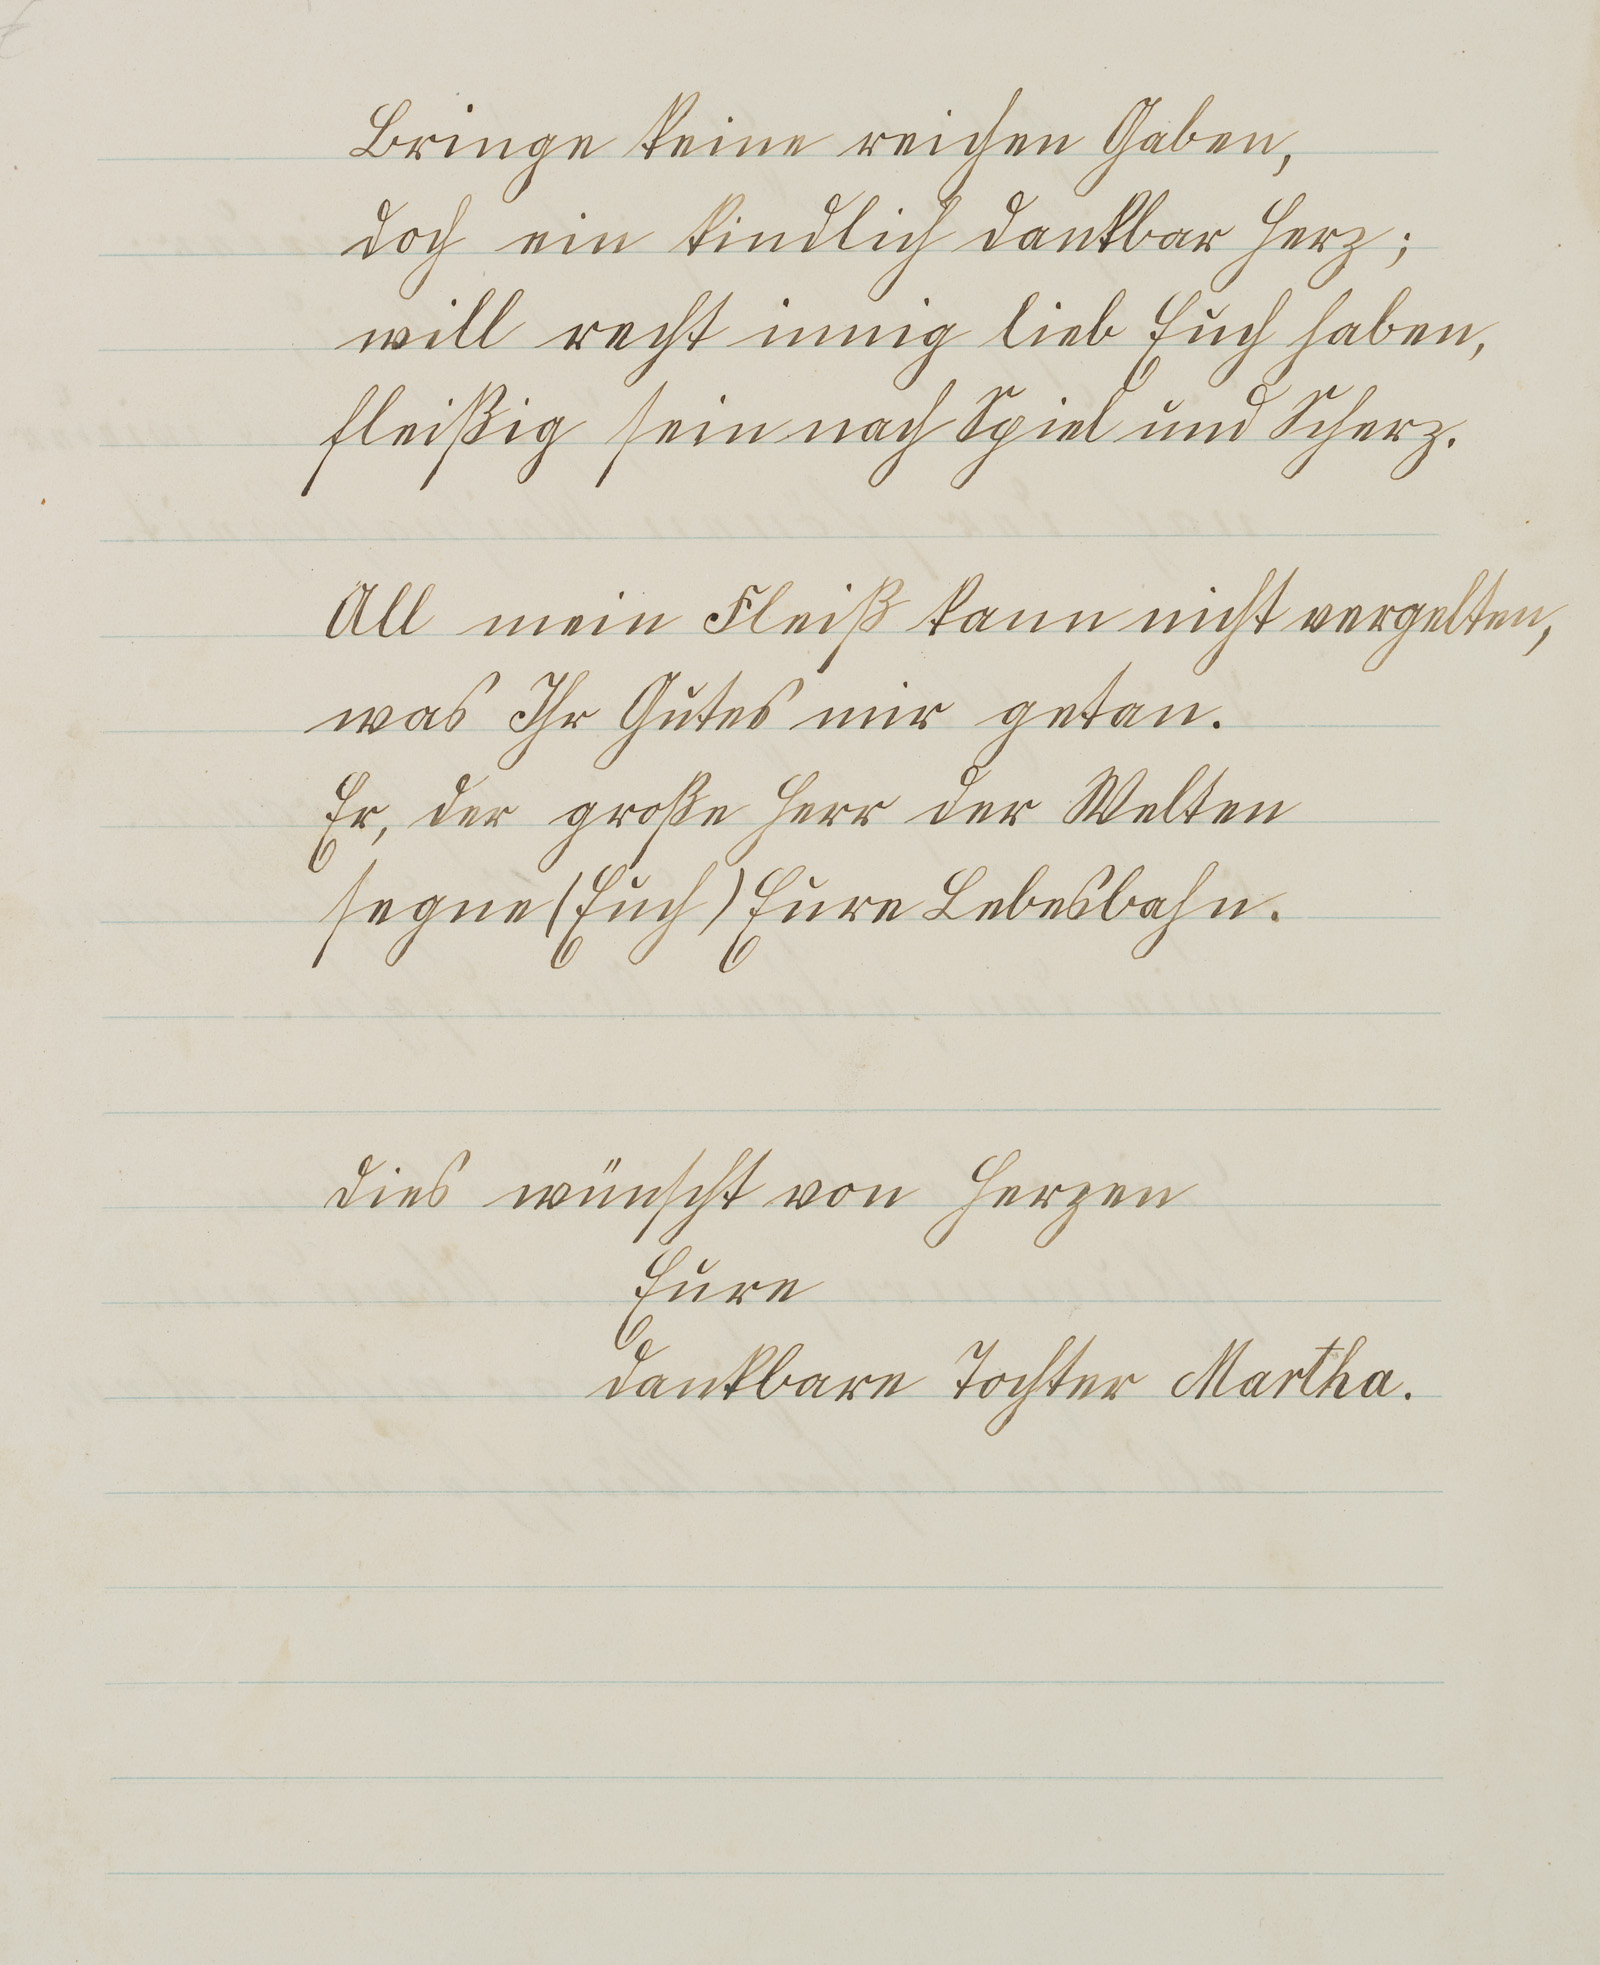 Bringe keine reichen Gaben,
doch ein kindlich dankbar Herz;
will recht innig lieb Euch haben,
fleißig sein nach Spiel und Scherz.
All mein Fleiß kann nicht vergelten,
was Ihr Gutes mir getan.
Er, der große Herr der Welten
segne (Euch) Eure Lebesbahn.
Dies wünscht von Herzen
Eure
dankbare Tochter Martha.